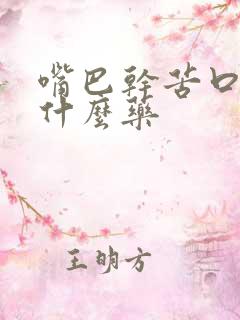 嘴巴幹苦口
什麼藥
王明方